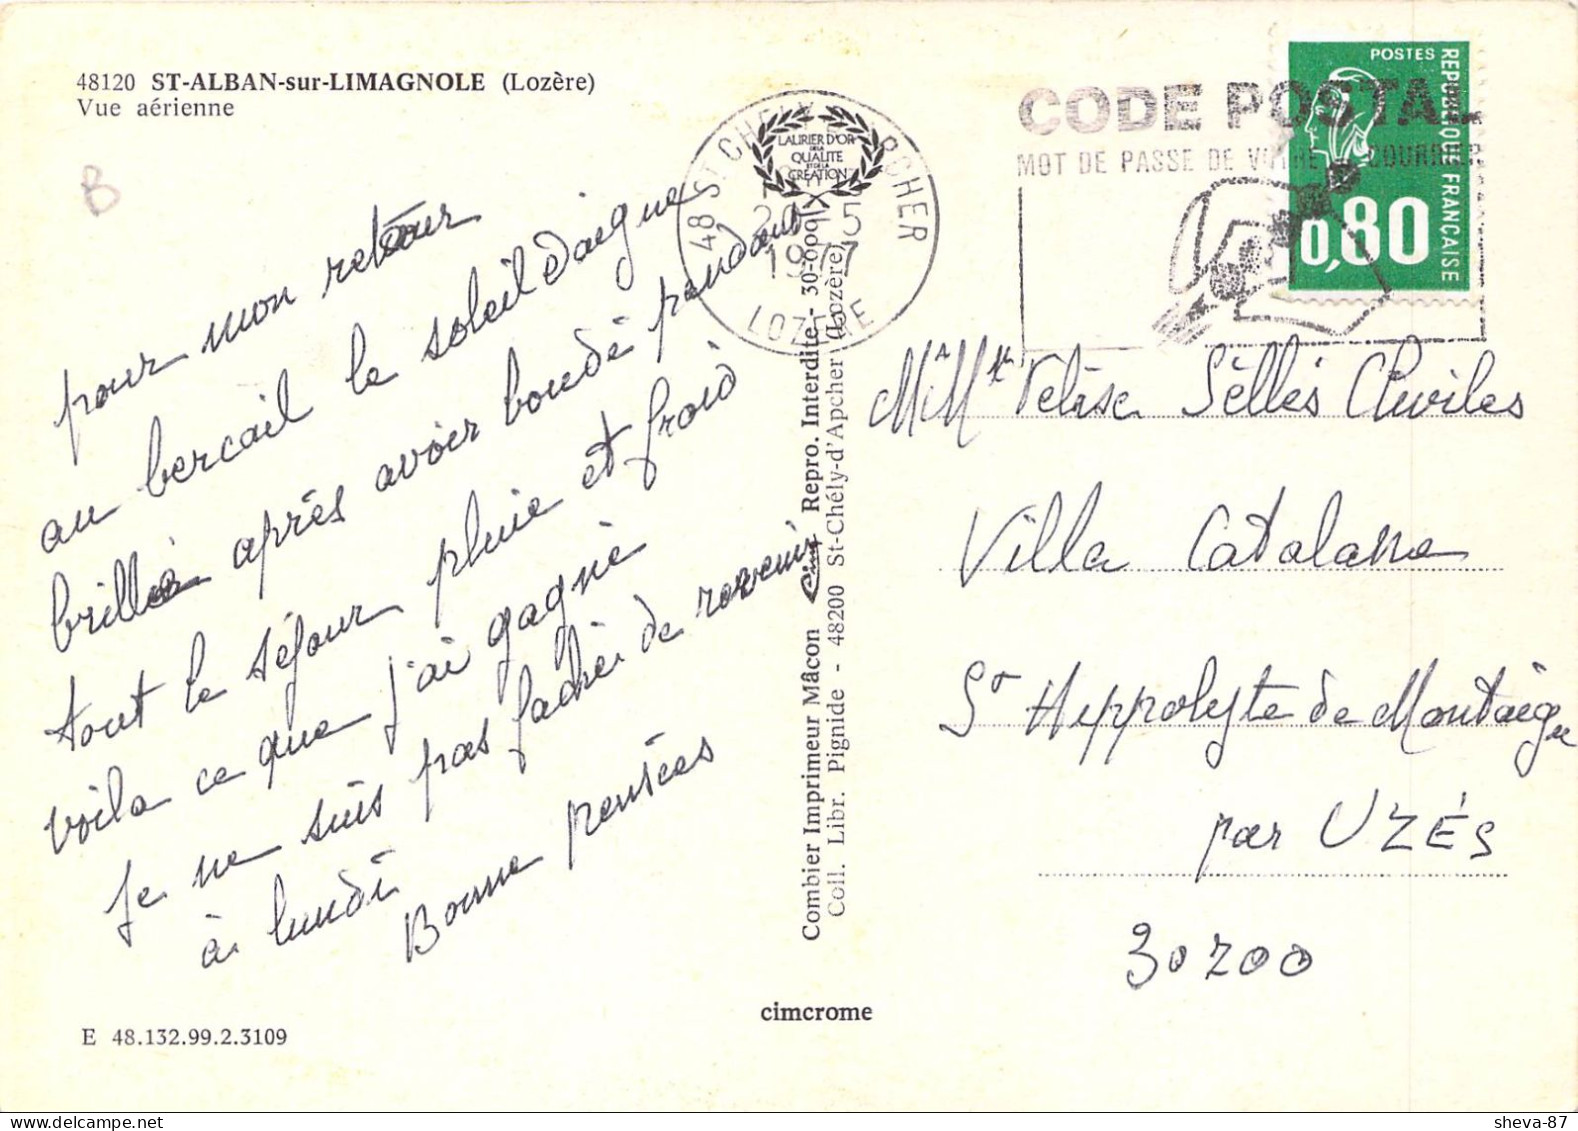 48120 ST-ALBAN-sur-LIMAGNOLE (Lozère)
Vue aérienne
B
pour mon retour
au bercail le soleil daigne
briller après avoir boudé pendant
tout le séjour pluie et froid
voila ce que j'ai gagné
Je ne suis pas fachée de revenir
à lundi
Bonne pensées
E 48.132.99.2.3109
LAURIER D'OR
DE LA
QUALITE
ET DE LA
CREATION
48 ST CHELY D'APCHER
5
1977
LOZERE
Combier Imprimeur Mâcon Cim Repro. Interdite - 30-600
Coll. Libr. Pignide - 48200 St-Chély-d'Apcher (Lozère)
cimcrome
CODE POSTAL
MOT DE PASSE DE VOTRE COURRIER
POSTES
REPUBLIQUE FRANÇAISE
0,80
Sèllés
Villa Catalane
St Hyppolyte de Montaigu
par UZÉS
30200
sheva-87